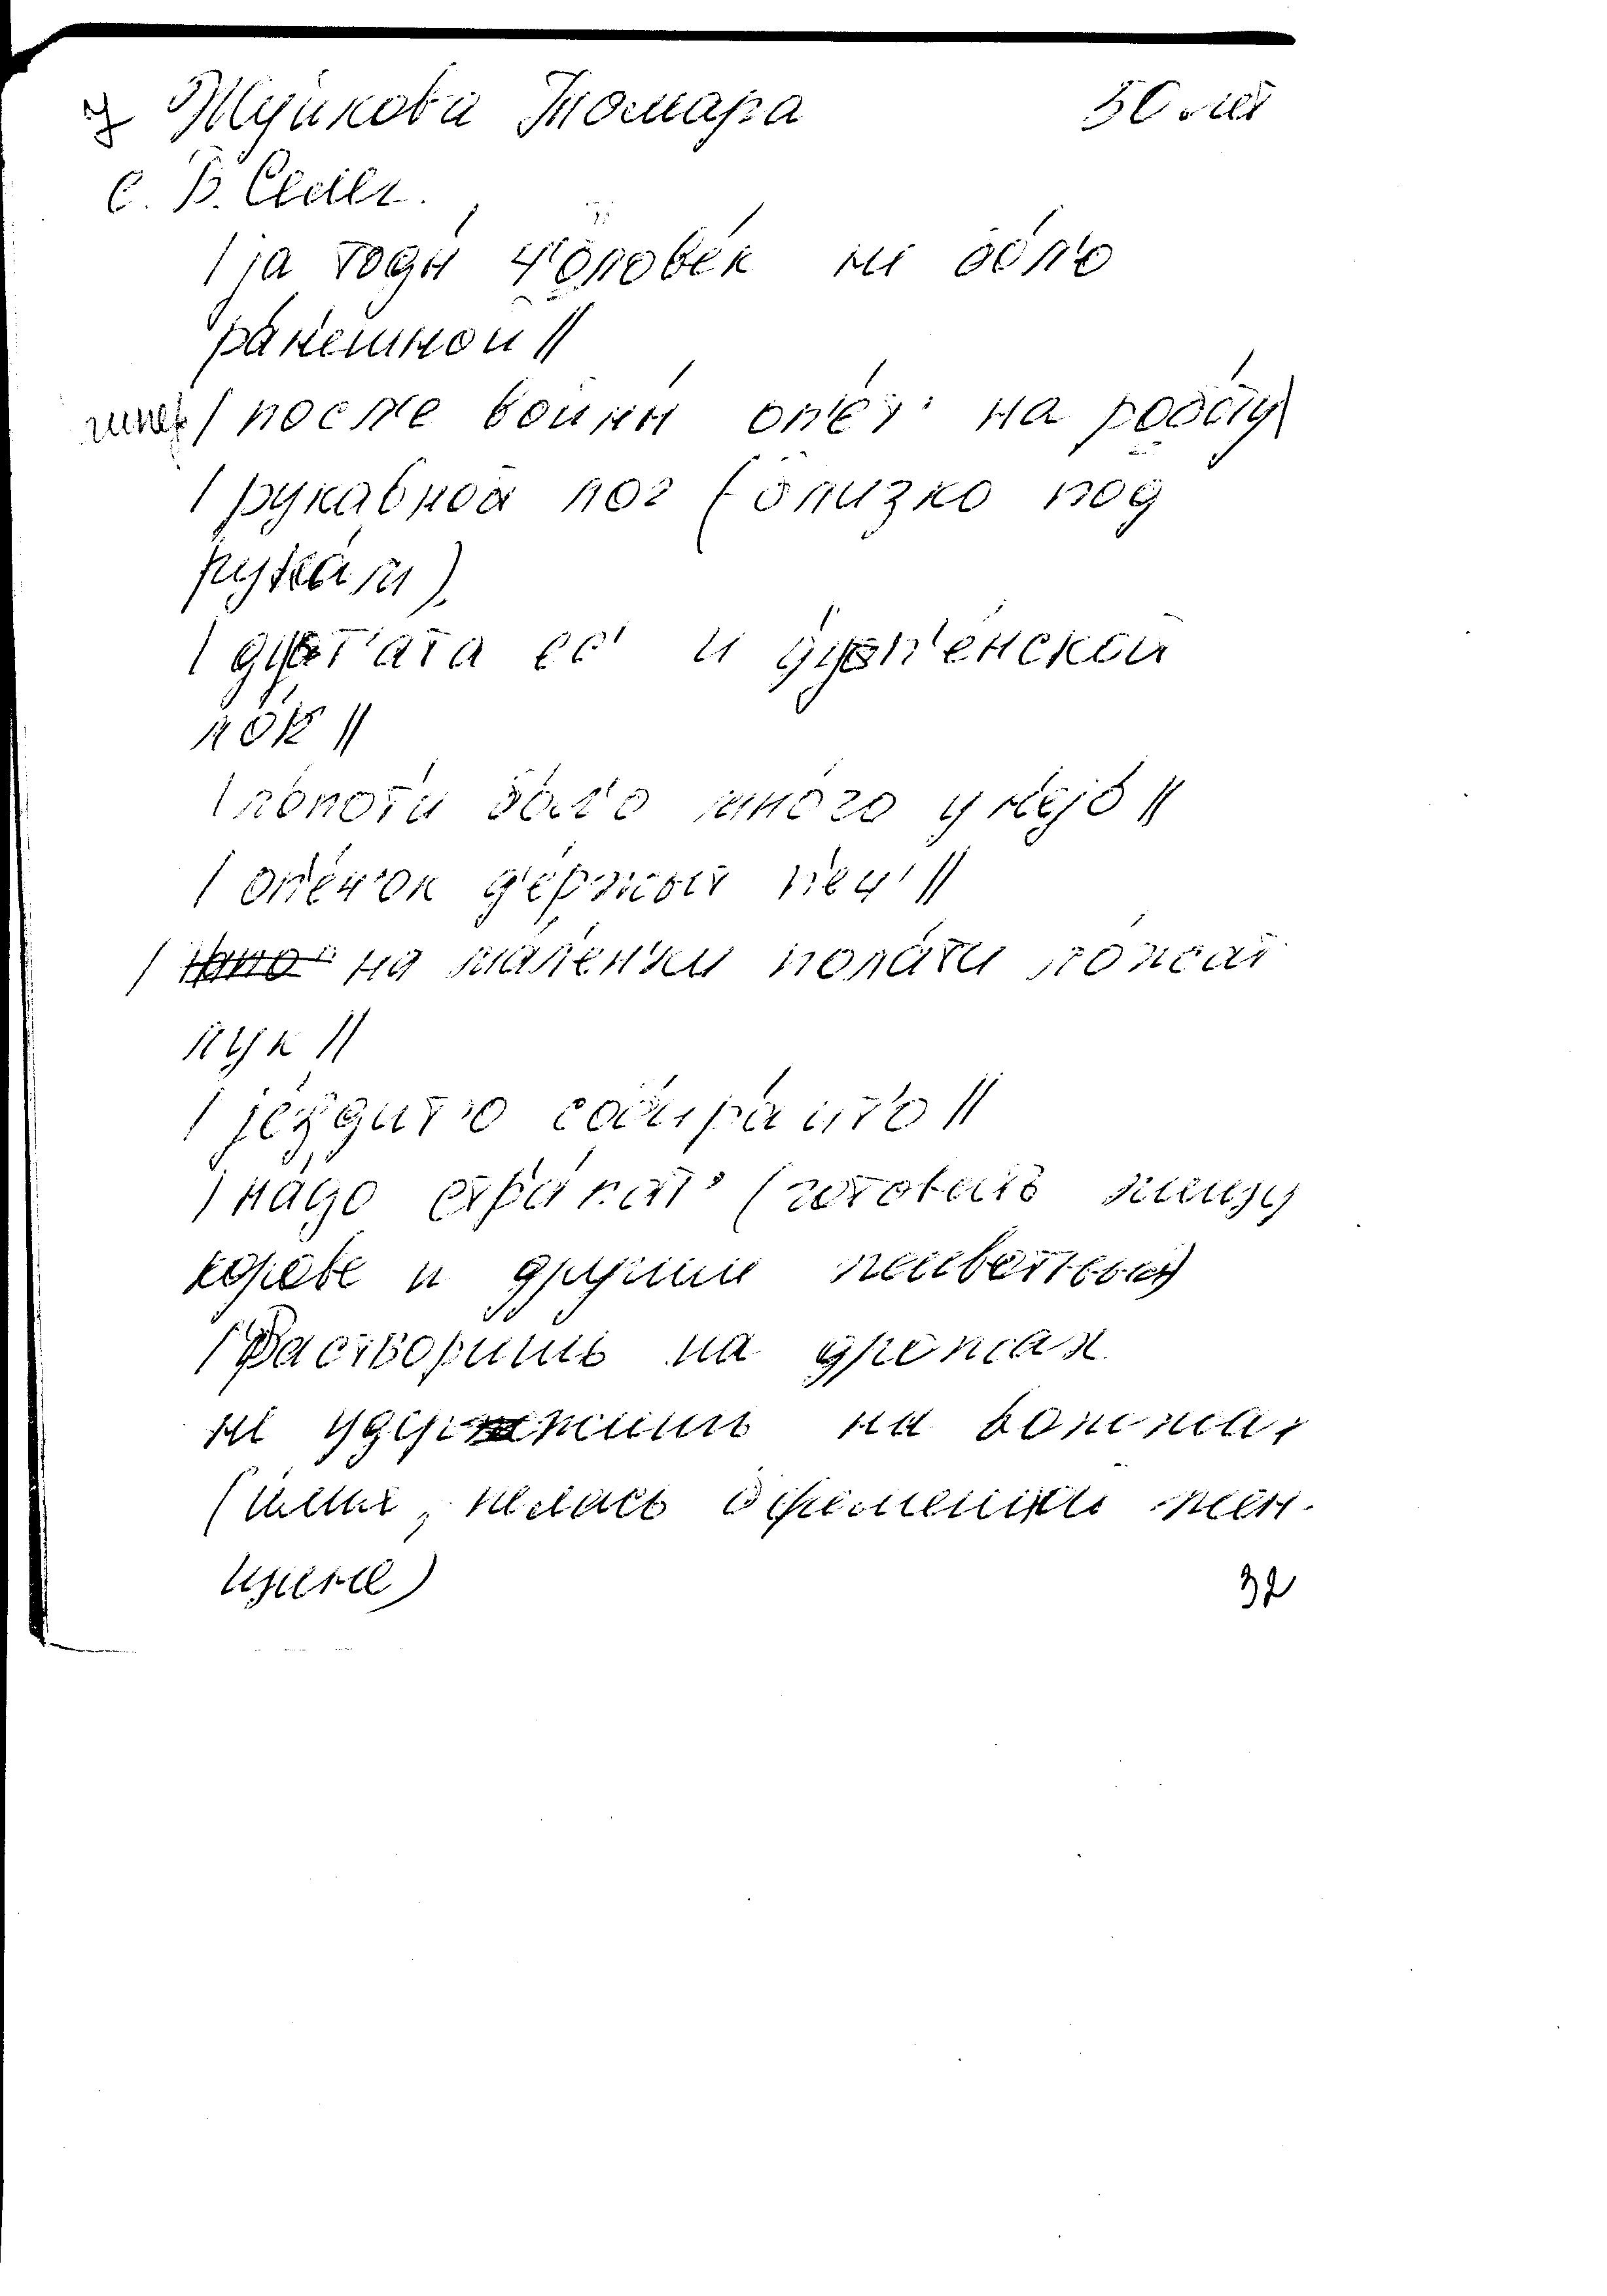 Жуйкова Томара 50 лет
с. В.
/ја тоды ч'оловек не бол'о
ранешной //
/ после войны оп'ет' на роботу/
/ рукавной лог (близко под
руками).
/ ес' и
лок //
/ лопоти бол'о много у нејо //
/ оп'ечок д'ержыт печ' //
/ на мален'ки полати ложат
лук //
/ јездит'о собираит'о //
/ надо стр'апат' (готовить пищу
корове и другим животным)
/ Растворишь на дрожах
не удержишь на вожжах
беременной жен-
щине)
32